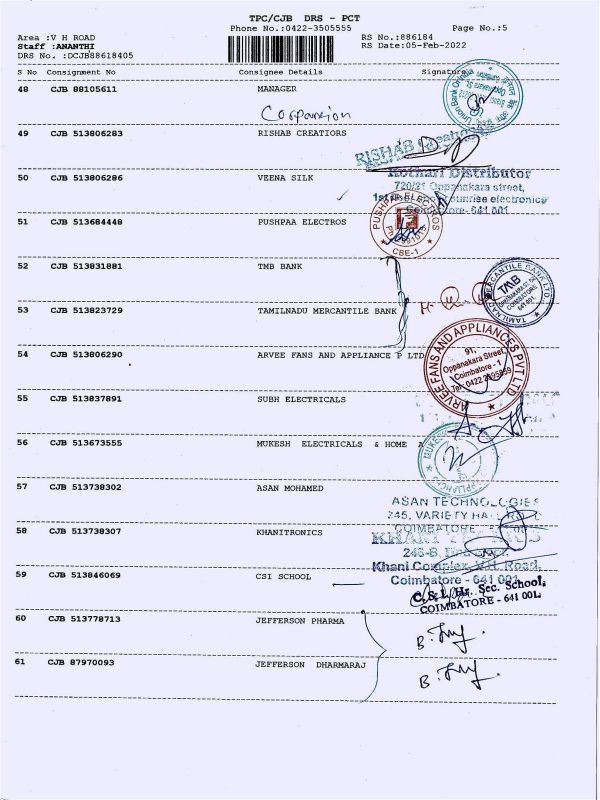 TPC/CJB DRS - PCT
Phone No.:0422-3505555
Page No.:5
Area :V H ROAD
RS No.:886184
Staff :ANANTHI
RS Date:05-Feb-2022
DRS No. :DCJB88618405
S No Consignment No Consignee Details Signature
48 CJB 88105611 MANAGER
49 CJB 513806283 RISHAB CREATIORS
RISHAB
50 CJB 513806286 VEENA SILK
Kothari Distributor
720/21 Oppanakara street,
Sunrise electronics
Coimbatore- 641 001
51 CJB 513684448 PUSHPAA ELECTROS
PUSHPAA ELECTROS
CBE-1
52 CJB 513831881 TMB BANK
TAMILNAD MERCANTILE BANK LTD
TMB
COIMBATORE
641 001
53 CJB 513823729 TAMILNADU MERCANTILE BANK
54 CJB 513806290 ARVEE FANS AND APPLIANCE P LTD
ARVEE FANS AND APPLIANCES PVT LTD
91,
Oppanakara Street,
Coimbatore - 1
55 CJB 513837891 SUBH ELECTRICALS
56 CJB 513673555 MUKESH ELECTRICALS & HOME
57 CJB 513738302 ASAN MOHAMED
ASAN TECHNOLOGIES
245, VARIETY HALL
COIMBATORE
58 CJB 513738307 KHANITRONICS
246-B,
Khani Complex, V.H. Road,
Coimbatore - 641 001
59 CJB 513846069 CSI SCHOOL
C.S.I. Hr. Sec. School,
COIMBATORE - 641 001.
60 CJB 513778713 JEFFERSON PHARMA
61 CJB 87970093 JEFFERSON DHARMARAJ